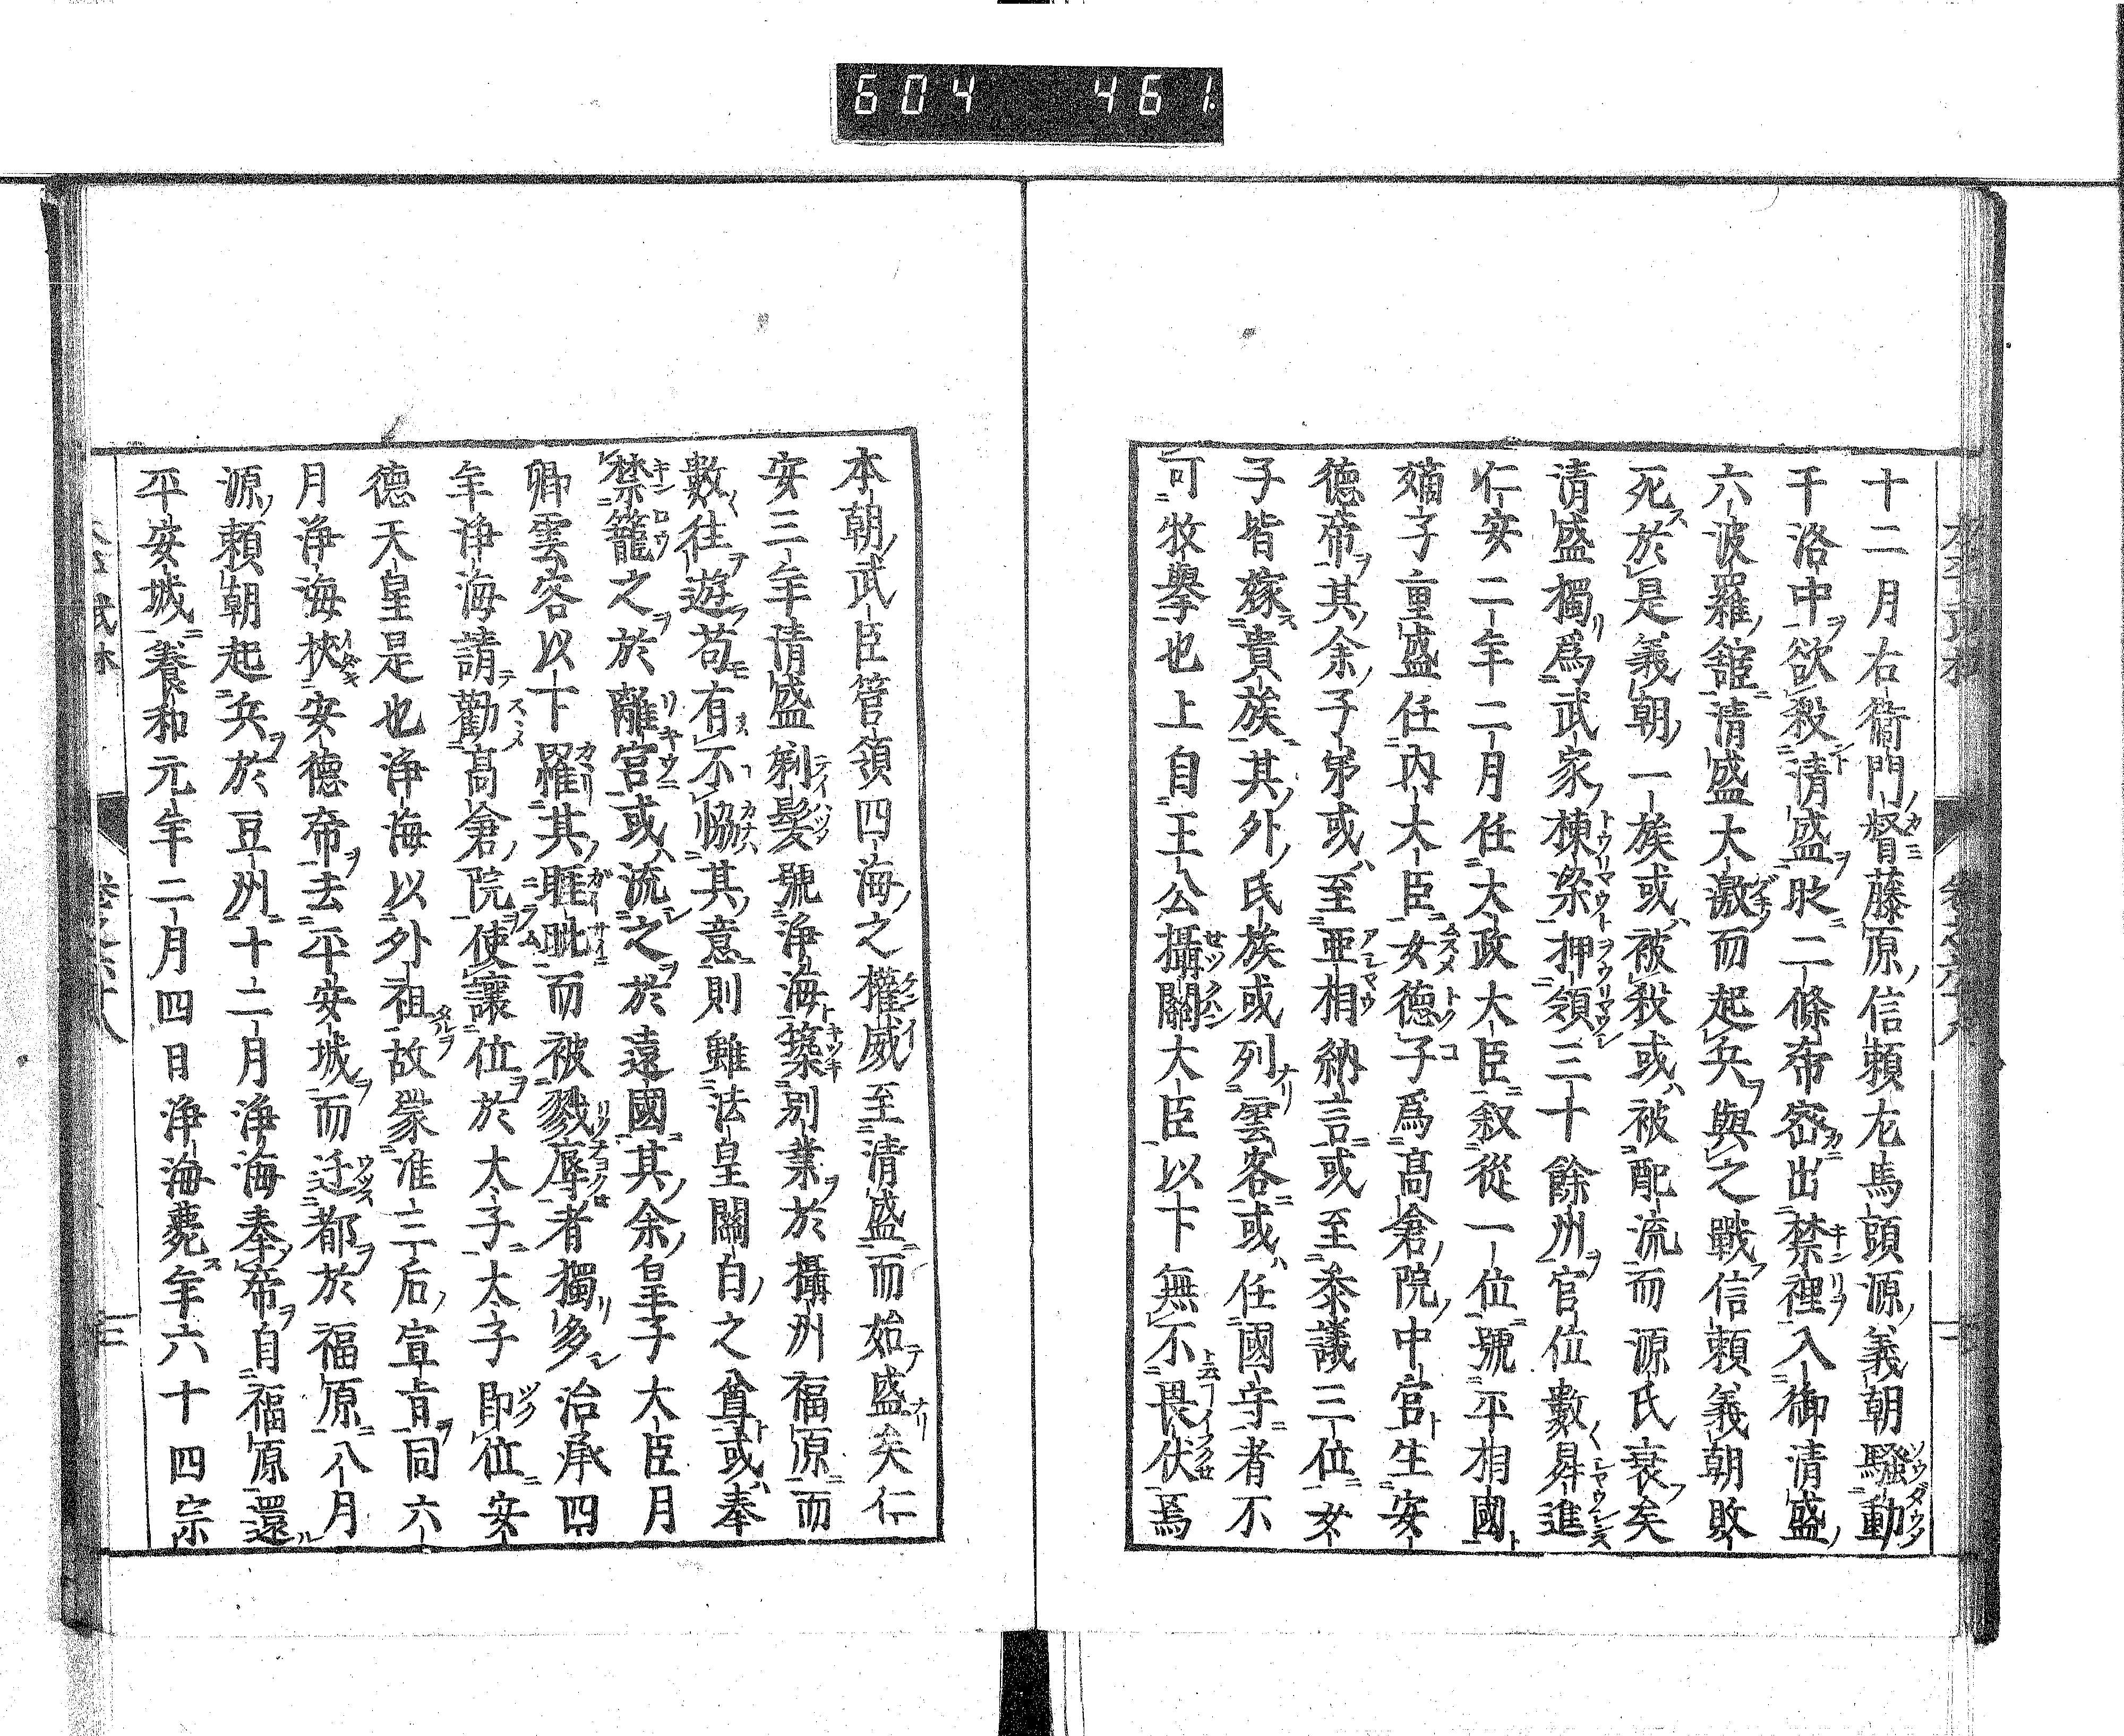 604 461
十二月右衞門督藤原信頼左馬頭源義朝騷動
于洛中欲殺清盛時二條帝密出禁裡入御清盛
六波羅舘清盛大激而起兵與之戰信頼義朝敗
死於是義朝一族或被殺或被配流而源氏衰矣
清盛獨爲武家棟梁押領三十餘州官位數昇進
仁安二年二月任大政大臣叙從一位號平相國
嫡子重盛任内大臣女德子爲高倉院中宮生安
德帝其余子弟或至亜相納言或至参議三位女
子皆嫁貴族其外氏族或列雲客或任國守者不
可牧擧也上自王公攝關大臣以下無不畏伏焉
本朝武臣管領四海之權威至清盛而始盛矣仁
安三年清盛剃髪號浄海築別業於攝州福原而
數往遊苟有不恊其意則雖法皇關白之尊或奉
禁籠之於離宮或流之於遠國其余皇子大臣月
卿雲客以下羅其睚眦而被戮辱者獨多治承四
年浄海請勸高倉院使讓位於太子太子即位安
德天皇是也浄海以外祖故蒙准三后宣旨同六
月浄海挾安德帝去平安城而迁都於福原八月
源頼朝起兵於豆州十二月浄海奉帝自福原還
平安城養和元年二月四日浄海薨年六十四宗